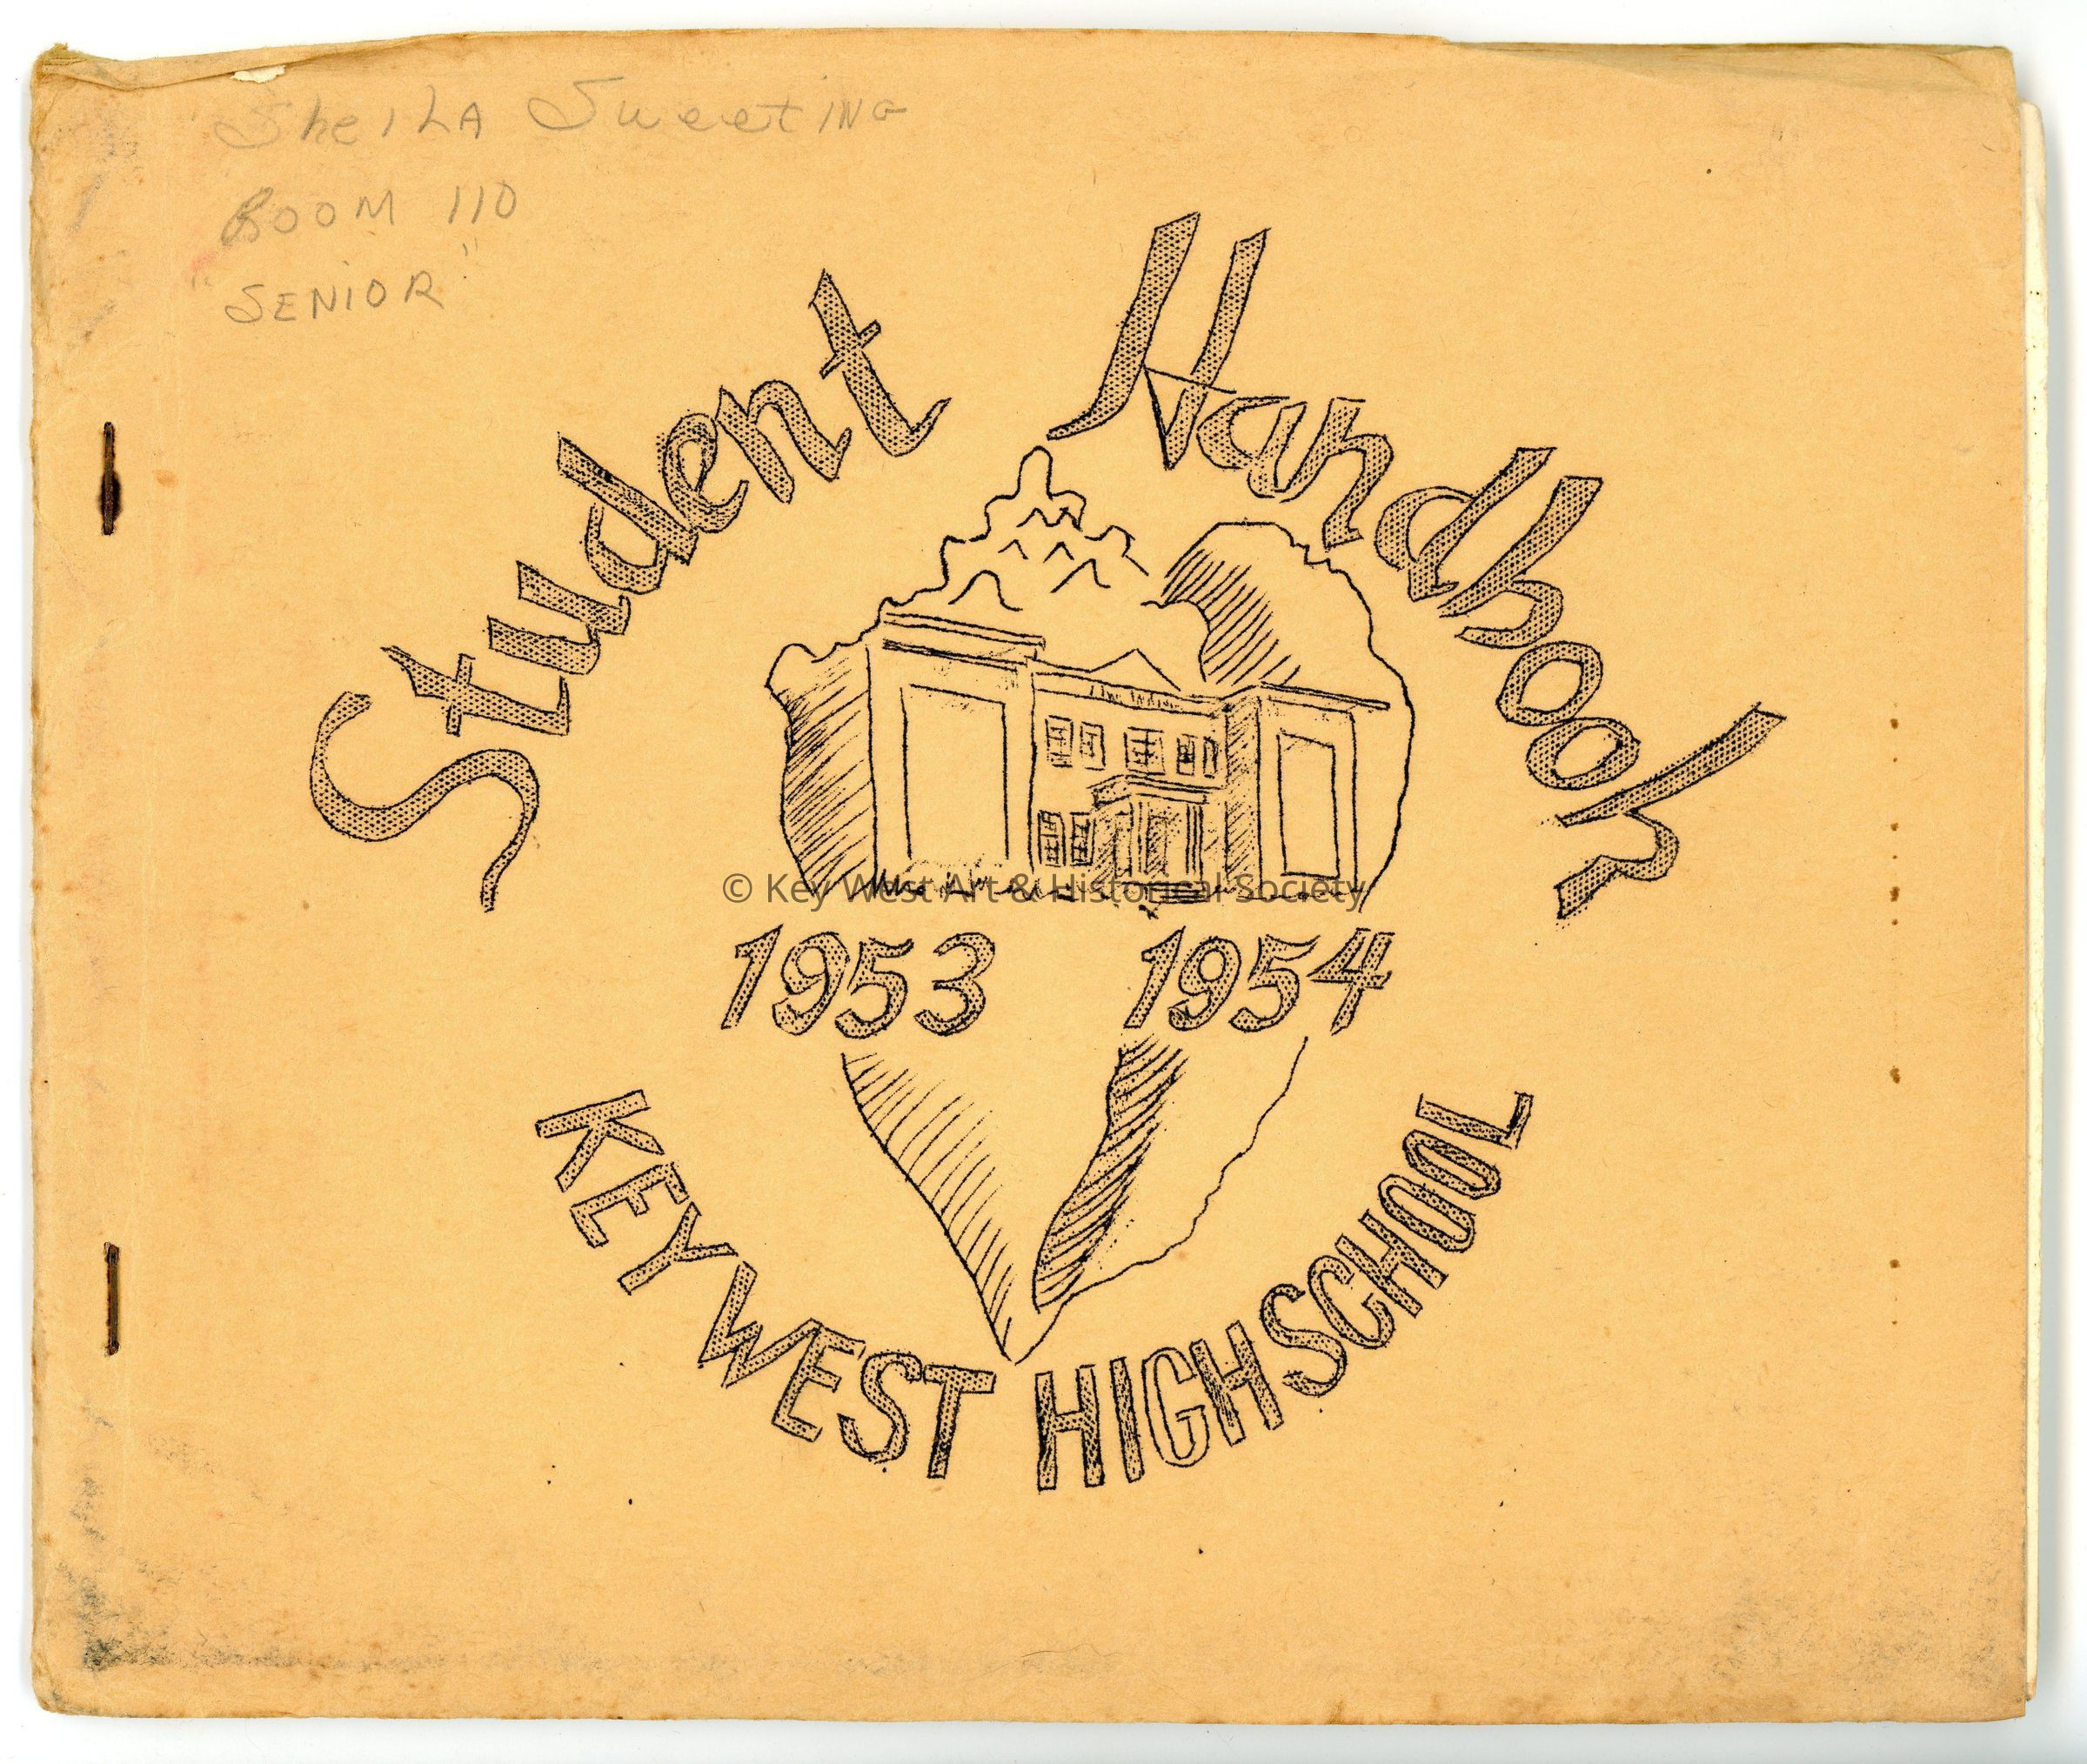 Sheila Sweeting
Room 110
"Senior"
Student Handbook
© Key West Art & Historical Society
1953 1954
KEY WEST HIGH SCHOOL